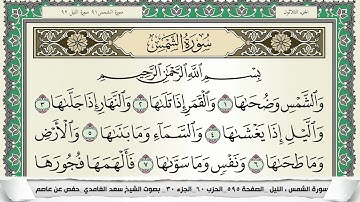 الجزء الثلاثون
سورة الشمس ٩١ سورة الليل ٩٢
سُورَةُ الشَّمْسِ
بِسْمِ اللَّهِ الرَّحْمَٰنِ الرَّحِيمِ
وَالشَّمْسِ وَضُحَىٰهَا ١ وَالْقَمَرِ إِذَا تَلَىٰهَا ٢ وَالنَّهَارِ إِذَا جَلَّىٰهَا ٣
وَالَّيْلِ إِذَا يَغْشَىٰهَا ٤ وَالسَّمَاءِ وَمَا بَنَىٰهَا ٥ وَالْأَرْضِ
وَمَا طَحَىٰهَا ٦ وَنَفْسٍ وَمَا سَوَّىٰهَا ٧ فَأَلْهَمَهَا فُجُورَهَا
سورة الشمس ، الليل الصفحة ٥٩٥ الحزب ٦٠ الجزء ٣٠ بصوت الشيخ سعد الغامدي حفص عن عاصم